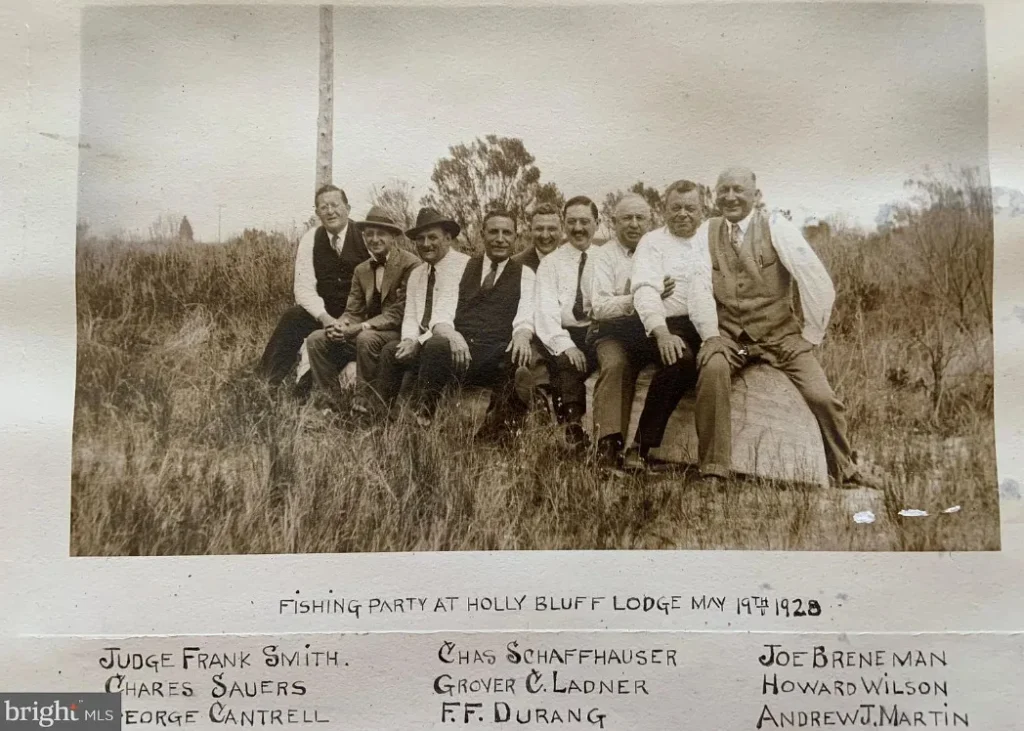 FISHING PARTY AT HOLLY BLUFF LODGE MAY 19TH 1928
JUDGE FRANK SMITH.
CHARES SAUERS
GEORGE CANTRELL
CHAS SCHAFFHAUSER
GROVER C. LADNER
F.F. DURANG
JOE BRENEMAN
HOWARD WILSON
ANDREW J. MARTIN
bright MLS